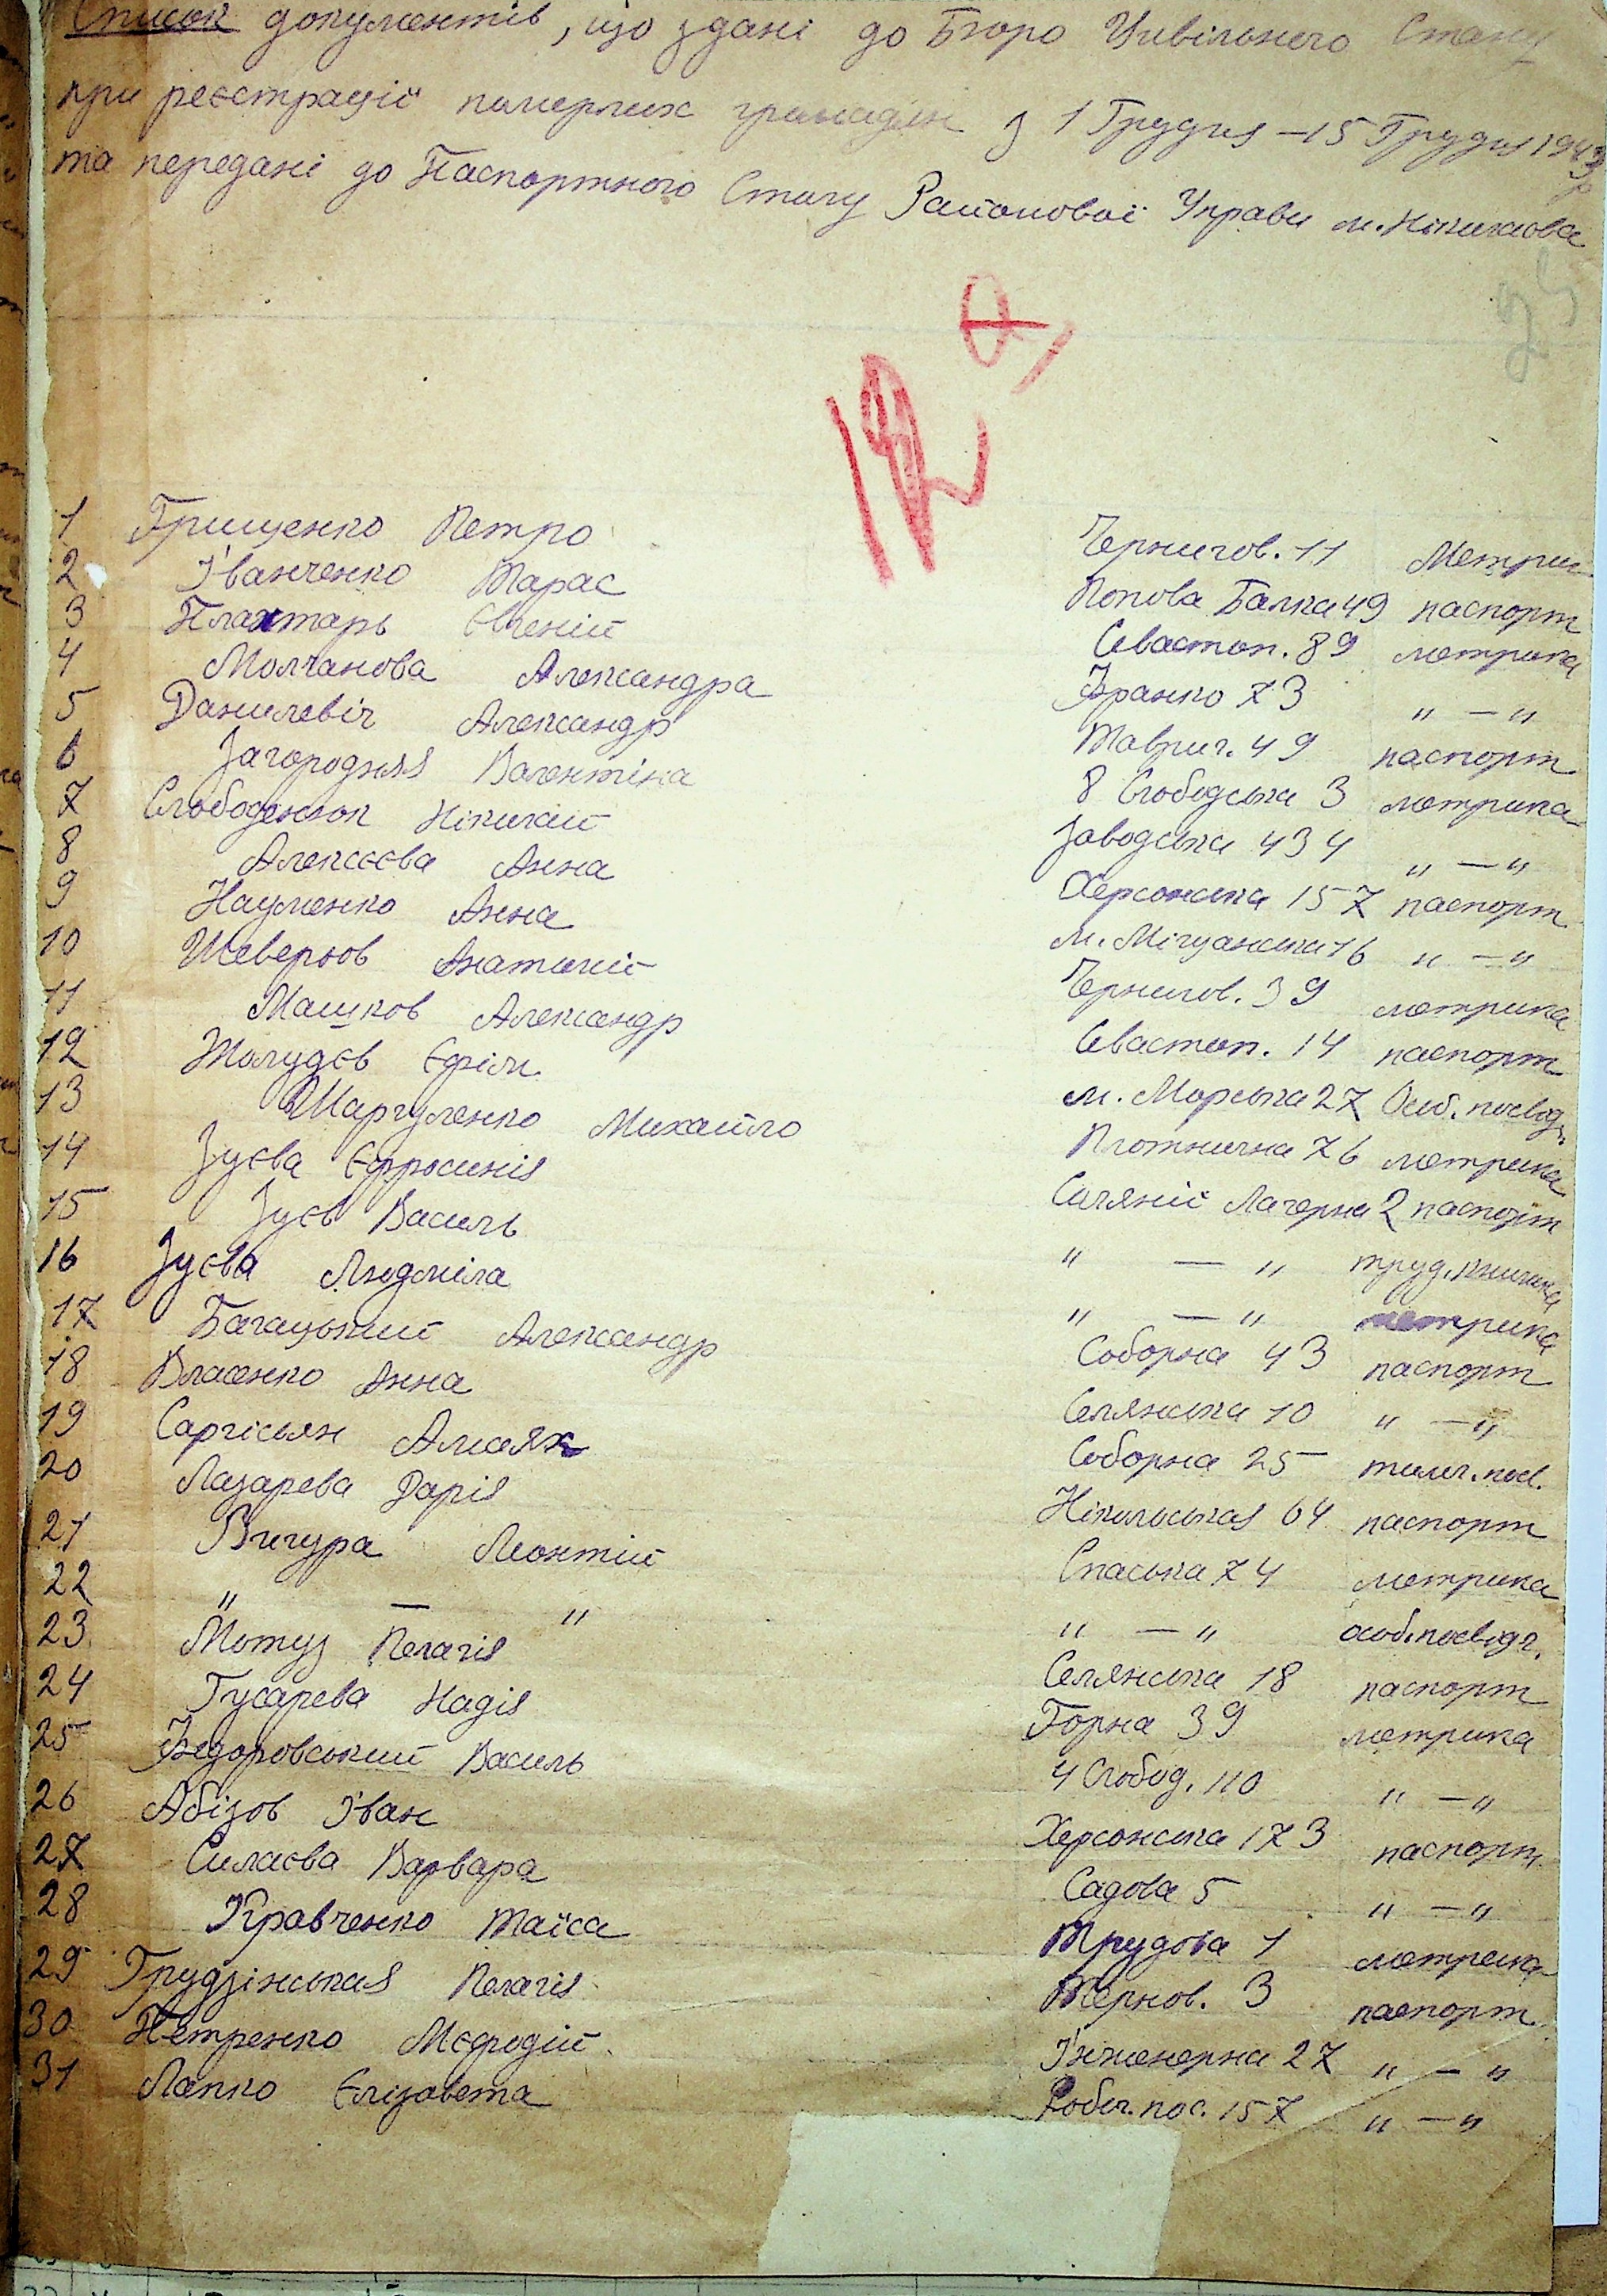 Список документів, що здані до Бюро Цивільного Стану
при реєстрації памерлих громадян з 1 Грудня – 15 Грудня 1943 р
та передані до Паспортного Столу Районової Управи м. Ніколаєва
1 Грищенко Петро Чернигов. 11 Метрик
2 Іванченко Тарас Попова Балка 49 паспорт
3 Плахтарь Євгеній Севастоп. 89 метрика
4 Молчанова Александра Франко 73 " — "
5 Данилевіч Александр Таврич. 49 паспорт
6 Загородняя Валентіна 8 Слободська 3 метрика
7 Слободенюк Ніколай Заводська 434 " — "
8 Алексєєва Анна Херсонська 157 паспорт
9 Науменко Анна м. Міщанська 16 " — "
10 Шеверьов Анатолій Чернигов. 39 метрика
11 Машков Александр Севастоп. 14 паспорт
12 Жолудєв Єфім м. Морська 27 Особ. посвод.
13 Шаргуленко Михайло Плотнична 76 метрика
14 Зуєва Єфросинія Саляній Лагерна 2 паспорт
15 Зуєв Василь " — " труд. книжка
16 Зуєва Людміла " — " метрика
17 Багацький Александр Соборна 43 паспорт
18 Власенко Анна Селянська 10 " — "
19 Саргісьян Амаяк Соборна 25 тимч. посв.
20 Лазарева Дарія Нікольская 64 паспорт
21 Вигура Леонтій Спаська 74 метрика
22 " — " " — " особ. посвідч.
23 Мотуз Пелагія Селянська 18 паспорт
24 Гусарева Надія Горна 39 метрика
25 Федоровський Василь 4 Слобод. 110 " — "
26 Абізов Іван Херсонська 173 паспорт
27 Силаєва Варвара Садова 5 " — "
28 Кравченко Таїса Трудова 1 метрика
29 Грудзінськая Пелагія Тернов. 3 паспорт
30 Петренко Мєфодій Інженерна 27 " — "
31 Лапко Єлізавета Робоч. пос. 157 " — "